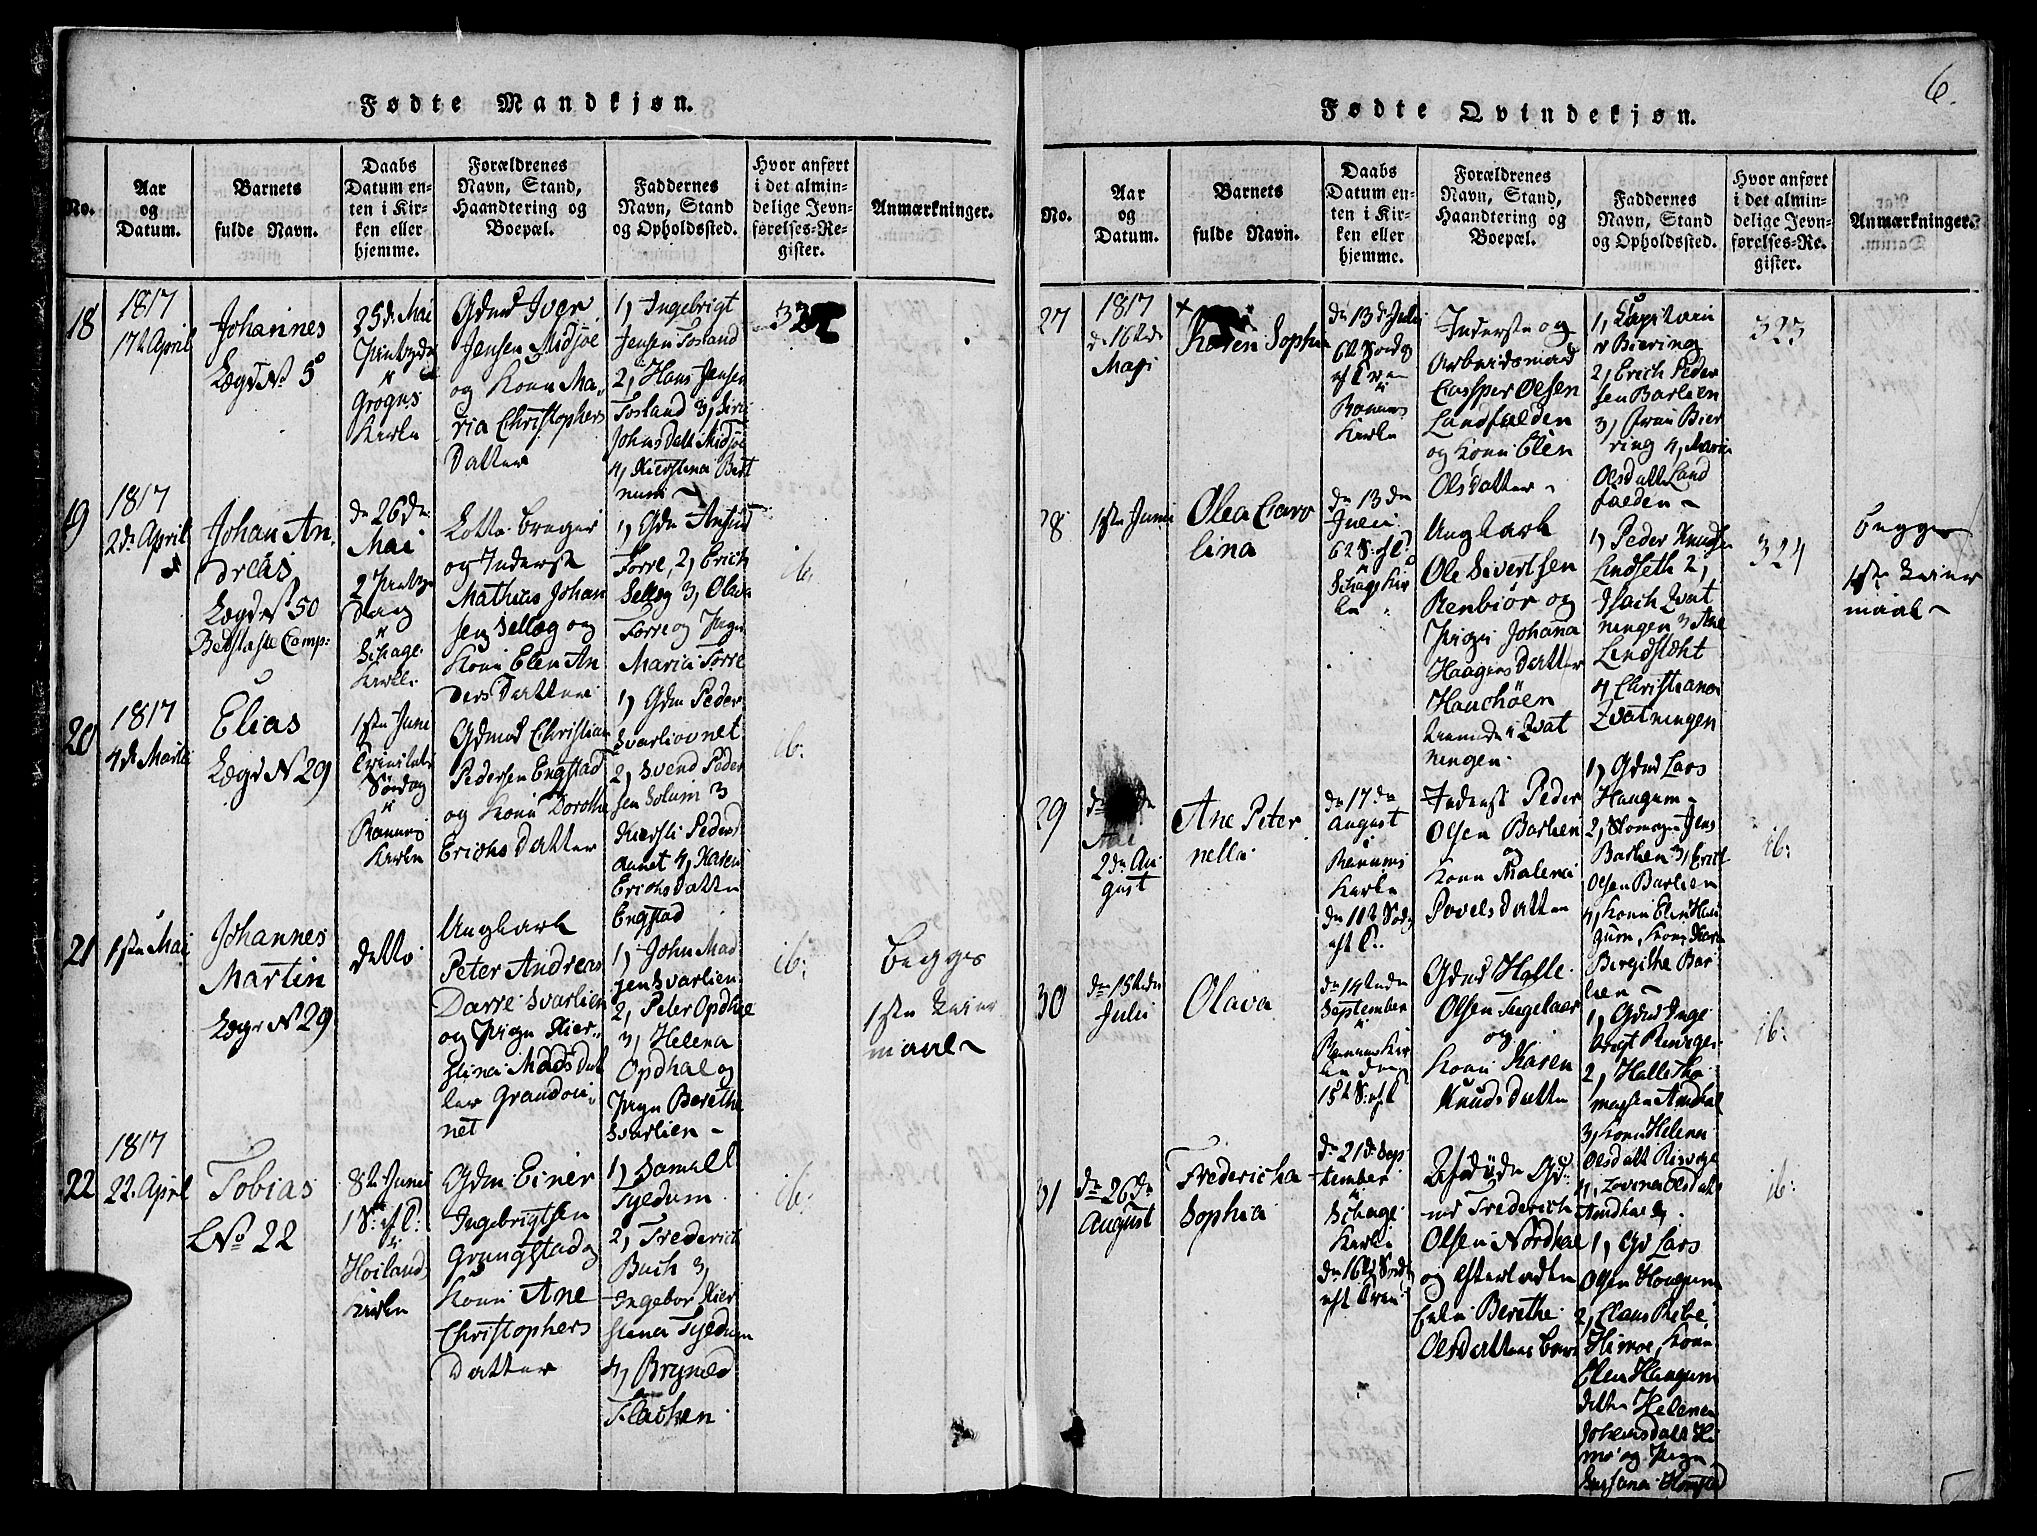 6.
Fødte Mandkjøn.
No.
Aar
og
Datum.
Barnets
fulde Navn.
Daabs
Datum en-
ten i Kir-
ken eller
hjemme.
Forældrenes
Navn, Stand,
Haandtering og
Boepæl.
Faddernes
Navn, Stand
og Opholdssted.
Hvor anført
i det almin-
delige Jevn-
førelses-Re-
gister.
Anmærkninger.
18
1817
17de April
Johannes
Lægd No 5
25de Mai
Grogns
Kirke
Gdmd Iver
Jensen Midjøe
og Kone Ma-
ria Christophers
Datter
1, Ingebrigt
Jensen Fosland
2, Hans Jensen
Fosland 3, Siri
Johnsdatt Midjøe
4,
19
1817
2de April
Johan An-
dreas
Lægd No 50
26de
Mai
2
Dag
i
Schage
Kirke
og Inderst
Mathias Johan
sen Sellæg og
Kone Elen An
ders Datter
1, Gdm
Forre, 2, Erich
Sellæg 3, Olava
Forre og Pign
Maria Forre
ib.
20
1817
4de Martii
Elias
Lægd No 29
1ste Juni
Trinitatis
Søndag
i
Ranums
Kirke
Gdmd Christian
Pedersen Engstad
og Kone Dorothe
Erichs Datter
1, Gdm Peder
Svarliovnet
2, Svend Peder
sen Solum 3
Kiersti Peders
4, Karen
Erichs Datter
Engstad
ib.
21
1ste Mai
Johannes
Martin
Lægd No 29
detto
Ungkarl
Peter Andreas
Darre Svarlien
og Pign Kier-
stina Mads Dat
ter Grandou-
net
1, John Mad
sen Svarlien
2, Peter Opdhal
3, Helena
Opdhal og
Pign Berethe
Svarlien
ib.
begges
1ste Leier
maal
22
1817
22. April
Tobias
L No 22
8de Juni
1 S: eft T:
i
Høilands
Kirke
Gdm Einer
Ingebrigtsen
Grongstad og
Kone Ane
Christophers
Datter
1, Samuel
Tyldum
2, Frederich
Buch 3,
Ingebor Kier
stena Tyldum
4, Bryneld
Flachen
ib.
Fødte Qvindekjøn.
No.
Aar
og
Datum.
Barnets
fulde Navn.
Daabs
Datum en-
ten i Kir-
ken eller
hjemme.
Forældrenes
Navn, Stand,
Haandtering og
Boepæl.
Faddernes
Navn, Stand
og Opholdssted.
Hvor anført
i det almin-
delige Jevn-
førelses-Re-
gister.
Anmærkninger.
27
1817
d. 16de
Maji
Karen Sophia
den 13de Julii
6te Sondg
eft Tren
i
Ranums
Kirke
Inderste og
Arbeidsmand
Casper Olsen
Landfalden
og Kone Elen
Olsdatter
1, Capitain
v Biering
2, Erich Peder
sen Barlien
3, Frue Bier
ring 4, Maria
Olsdatt Land
falden
323
28
1ste Junii
Olea Caro
lina
den 13de
Julii
6te S. eft T
i
Schage Kir
ke
Ungkarl
Ole Sivertsen
Renbiør og
Pige Johana
Haagens Datter
Hauchøen
1, Peder Knuds
Lindseth 2,
Isach Zvat
ningen 3 Ane
Lindsæht
4 Christiana
Zvatningen
324
begges
1ste Leier
maal
29
2de Au
gust
Ane Peter
nella
den 17de
August
i
Ranums
Kirke
den 11te Sondg
eft T.
Inderst Peder
Olsen Barlien
og
Kone Malena
Povels Datter
1, Gdmd Lars
Haugum
2, Jens
Barlien 3, Erich
Olsen Barlien
4, Kone Elen Hau
gum, Kone Karen
Birgithe Bar
lien
ib.
30
den 15de
Julii
Olava
den 14de
September
i
Ranums Kir
ke den
15de S: eft T
Gdmd Halle
Olsen
og
Kone Karen
Knuds Datter
1, Gdmd Inge
brigt
2, Halle Tho
massen Amdhal
3, Kone Helena
Olsdatt
4, Olsdatt
Amdhal
ib.
31
den 26de
August
Fredericha
Sophia
den 21de Sep
tember
i
Schage
Kirke
den 16de Sondg
eft Tren
Afdøde Gd
md Frederich
Olsen Nordhal
og efterladte
Enke Berethe
Olsdatters barn
1, Gd Lars
Olsen Haugum
2, Claus Ribe
Himoe, Kone
Elen Haugum
Helena
Johansdatt Hi
mo og Pign
ib.